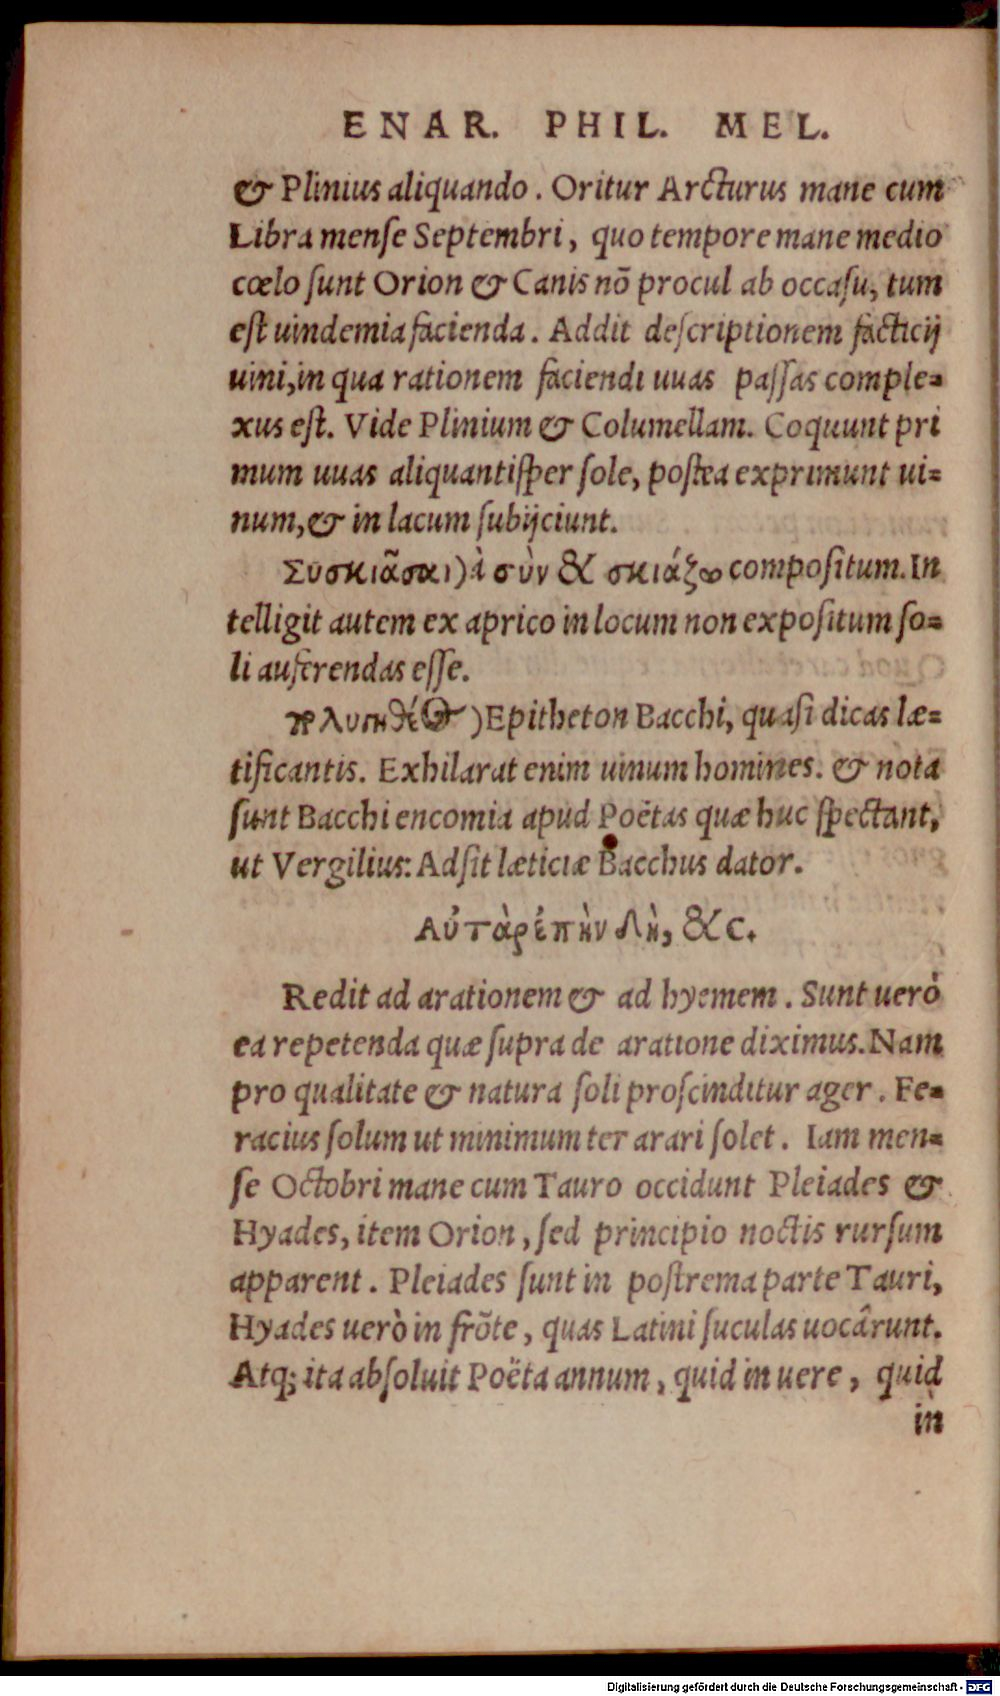 ENAR. PHIL. MEL.
& Plinius aliquando. Oritur Arcturus mane cum
Libra mense Septembri, quo tempore mane medio
cœlo sunt Orion & Canis nõ procul ab occasu, tum
est uindemia facienda. Addit descriptionem facticij
uini, in qua rationem faciendi uuas passas comple-
xus est. Vide Plinium & Columellam. Coquunt pri
mum uuas aliquantisper sole, postea exprimunt ui-
num, & in lacum subijciunt.
Συσκιᾶσαι) à σὺν & σκιάζω compositum. In
telligit autem ex aprico in locum non expositum so-
li auferendas esse.
πολυγηθέος) Epitheton Bacchi, quasi dicas læ-
tificantis. Exhilarat enim uinum homines. & nota
sunt Bacchi encomia apud Poëtas quæ huc spectant,
ut Vergilius: Adsit læticiæ Bacchus dator.
Αὐτὰρ ἐπὴν δὴ, &c.
Redit ad arationem & ad hyemem. Sunt uerò
ea repetenda quæ supra de aratione diximus. Nam
pro qualitate & natura soli proscinditur ager. Fe-
racius solum ut minimum ter arari solet. Iam men-
se Octobri mane cum Tauro occidunt Pleiades &
Hyades, item Orion, sed principio noctis rursum
apparent. Pleiades sunt in postrema parte Tauri,
Hyades uerò in frõte, quas Latini suculas uocârunt.
Atq; ita absoluit Poëta annum, quid in uere, quid
in
Digitalisierung gefördert durch die Deutsche Forschungsgemeinschaft - DFG